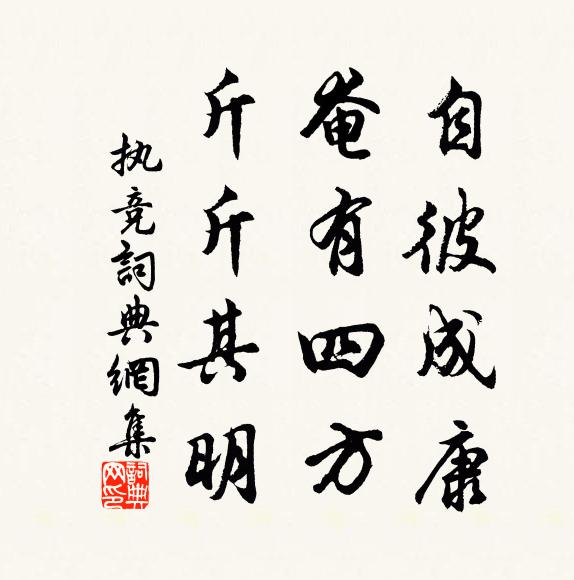 自彼成康
奄有四方
斤斤其明
执竞詞典網集
詞典网印